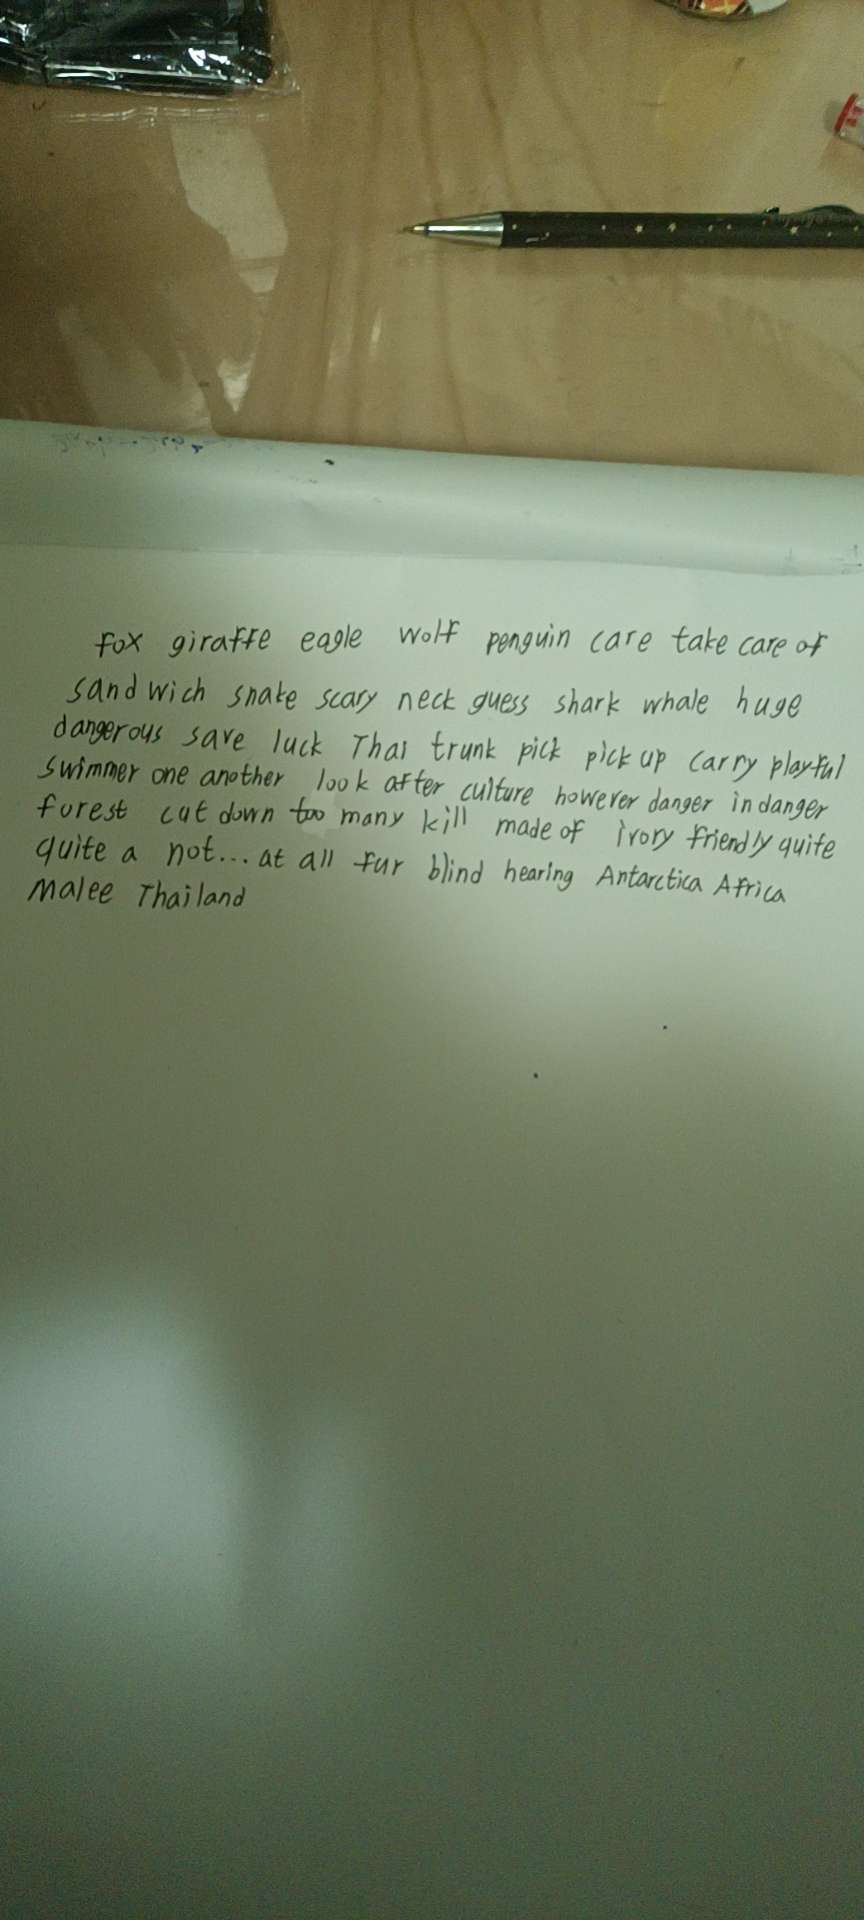 fox giraffe eagle wolf penguin care take care of
sandwich snake scary neck guess shark whale huge
dangerous save luck Thai trunk pick pick up carry playful
swimmer one another look after culture however danger in danger
forest cut down too many kill made of ivory friendly quite
quite a not... at all fur blind hearing Antarctica Africa
Malee Thailand